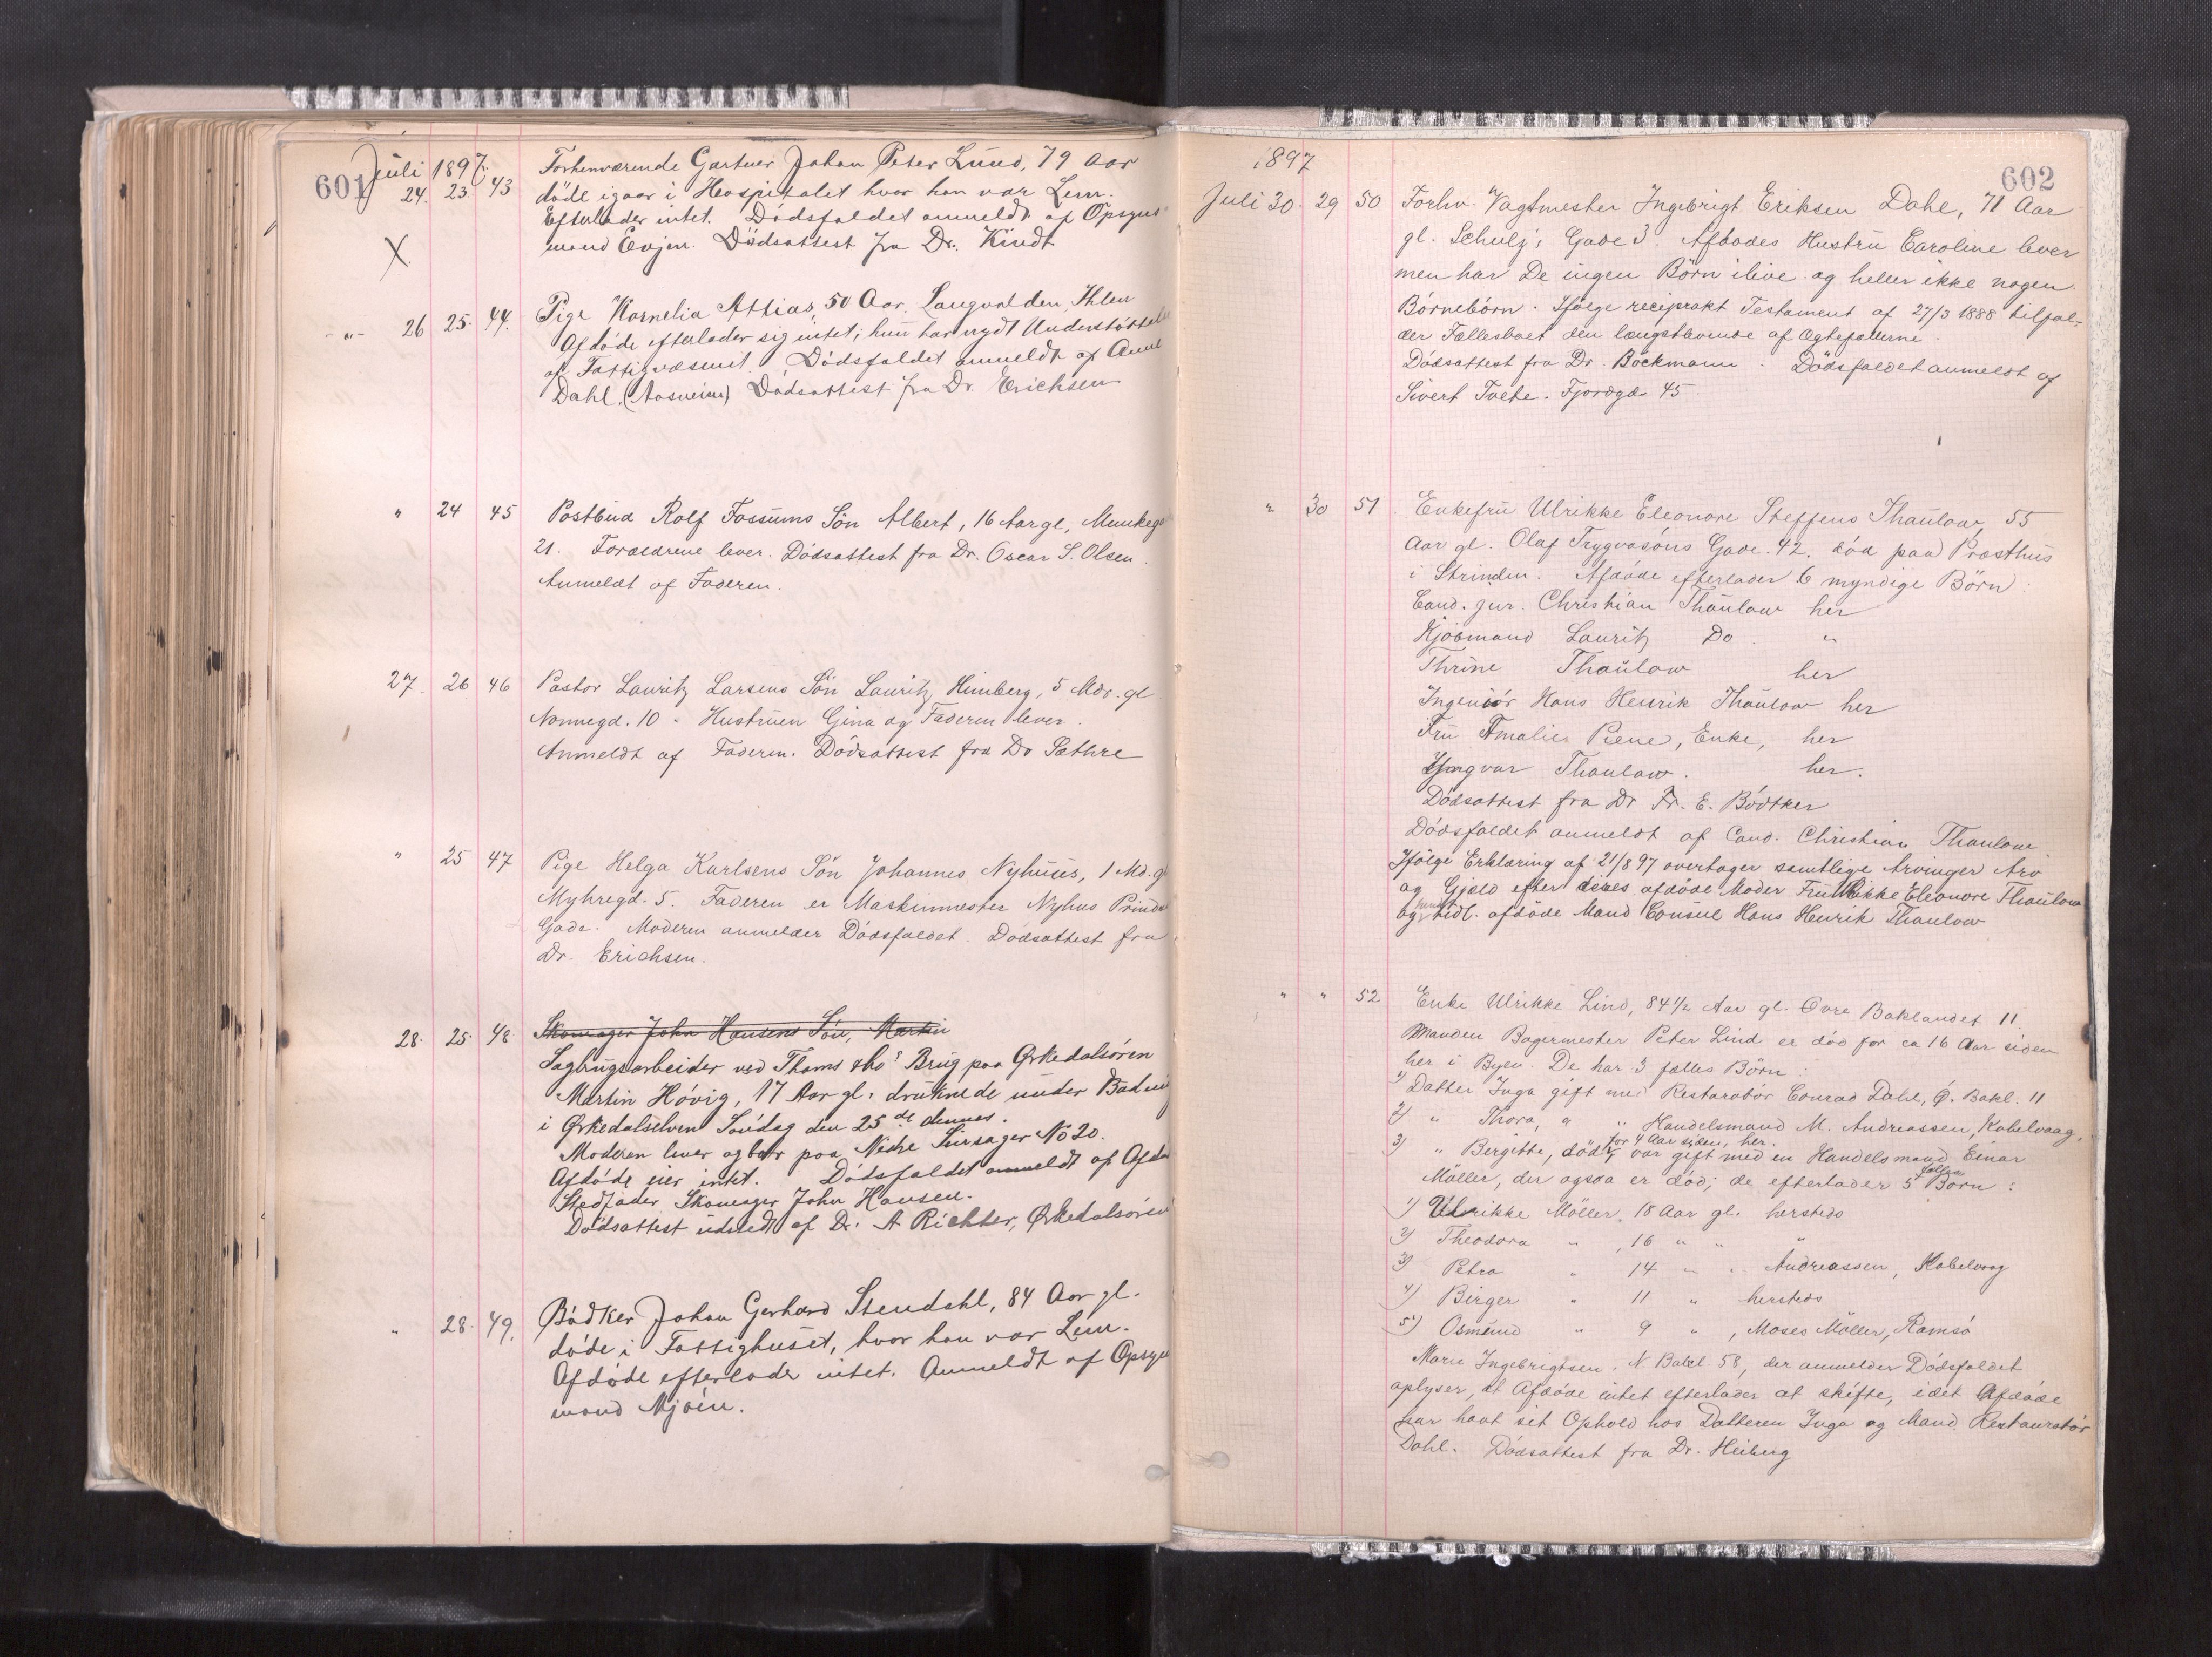 601
Juli 1897.
24. 23. 43 Forhenværende Gartner Johan Peter Lund, 79 Aar
døde igaar i Hospitalet hvor han var Lem.
Efterlader intet. Dødsfaldet anmeldt af Opsyns-
mand Evjen. Dødsattest fra Dr. Kindt
X
-"- 26 25. 44. Pige Kornelia Attias, 50 Aar, Langvolden, Ihlen
Afdøde efterlader sig intet; hun har nydt Understøttelse
af Fattigvæsenet. Dødsfaldet anmeldt af Anne
Dahl. (Aasveien) Dødsattest fra Dr. Erichsen
" 24 45 Postbud Rolf Fossums Søn Albert, 16 Aar gl, Munkegd
21. Forældrene lever. Dødsattest fra Dr. Oscar S. Olsen.
Anmeldt af Faderen.
27. 26 46 Pastor Lauritz Larsens Søn Lauritz Himberg, 5 Mdr. gl.
Nonnegd. 10. Hustruen Gina og Faderen lever.
Anmeldt af Faderen. Dødsattest fra Dr Sæthre
" 25 47 Pige Helga Karlsens Søn Johannes Nyhuus, 1 Md. gl
Myhregd. 5. Faderen er Maskinmester Nyhus Prinds
Gade. Moderen anmelder Dødsfaldet. Dødsattest fra
Dr. Erichsen.
28. 25. 48. Skomager John Hansens Søn, Martin
Sagbrugsarbeider ved Thams & Co's Brug paa Ørkedalsøren
Martin Høvig, 17 Aar gl. druknede under Badning
i Ørkedalselven Søndag den 25de dennes.
Moderen lever og bor paa Nedre Singsager No 20.
Afdøde eier intet. Dødsfaldet anmeldt af Afdødes
Stedfader Skomager John Hansen.
Dødsattest udstedt af Dr. A Richter, Ørkedalsøren
" 28. 49. Bødker Johan Gerhard Stendahl, 84 Aar gl.
døde i Fattighuset, hvor han var Lem.
Afdøde efterlader intet. Anmeldt af Opsyns
mand Mjøen.
602
1897
Juli 30. 29 50 Forhv. Vagtmester Ingebrigt Eriksen Dahl, 71 Aar
gl. Schulz's Gade 3. Afdødes Hustru Caroline lever
men har De ingen Børn ilive og heller ikke nogen
Børnebørn. Ifølge reciprokt Testament af 27/3 1888 tilfal-
der Fællesboet den længstlevende af Ægtefællerne.
Dødsattest fra Dr. Böckmann. Dødsfaldet anmeldt af
Sivert Tvete. Fjordgd. 45.
" 30 51. Enkefru Ulrikke Eleonore Steffens Thaulow, 55
Aar gl. Olaf Trygvasøns Gade. 42. død paa Præsthus
i Strinden. Afdøde efterlader 6 myndige Børn.
Cand. jur. Christian Thaulow her
Kjøbmand Lauritz Do. "
Thrine Thaulow her
Ingeniør Hans Henrik Thaulow her
Fru Amalie Piene, Enke, her
Yngvar Thaulow. her.
Dødsattest fra Dr Fr. E. Bødtker
Dødsfaldet anmeldt af Cand. Christian Thaulow.
Ifølge Erklæring af 21/8 97 overtager samtlige Arvinger Arv
og Gjæld efter deres afdøde Moder Fru Ulrikke Eleonore Thaulow
og hendes tidl. afdøde Mand Consul Hans Henrik Thaulow
" " 52 Enke Ulrikke Lind, 84 1/2 Aar gl. Øvre Baklandet 11
Manden Bagermester Peter Lind er død for ca 16 Aar siden
her i Byen. De har 3 fælles Børn:
1) Datter Inga gift med Restaratør Conrad Dahl, Ø. Bakl. 11
2) " Thora, " " Handelsmand M. Andreassen, Kabelvaag,
3) " Bergitte, død for 4 Aar siden, her. var gift med en Handelsmand Einar
Möller, der ogsaa er død; de efterlader 5 fælles Børn:
1) Ulrikke Möller, 18 Aar gl. hersteds
2) Theodora " , 16 " " "
3) Petra " 14 " " Andreassen, Kabelvaag
4) Birger " 11 " hersteds
5) Osmund " 9 " , Moses Möller, Ramsö
Marie Ingebrigtsen, N. Bakl. 58, der anmelder Dødsfaldet
oplyser, at Afdøde intet efterlader at skifte, idet Afdøde
har havt sit Ophold hos Datteren Inga og Mand Restauratør
Dahl. Dødsattest fra Dr. Heiberg